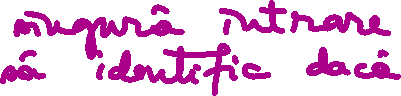 singură intrare
să identific dacă